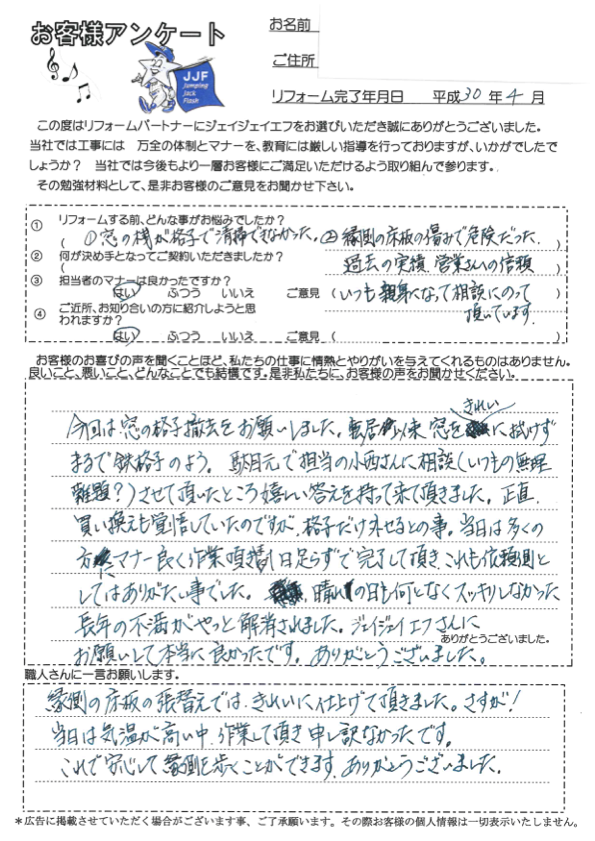 お客様アンケート
JJF
Jumping
Jack
Flash
お名前
ご住所
リフォーム完了年月日 平成30年4月
この度はリフォームパートナーにジェイジェイエフをお選びいただき誠にありがとうございました。
当社では工事には 万全の体制とマナーを、教育には厳しい指導を行っておりますが、いかがでしたで
しょうか? 当社では今後もより一層お客様にご満足いただけるよう取り組んで参ります。
その勉強材料として、是非お客様のご意見をお聞かせ下さい。
① リフォームする前、どんな事がお悩みでしたか?
( ①窓の桟が格子で清掃できなかった。②縁側の床板の傷みで危険だった )
② 何が決め手となってご契約いただきましたか?
( 過去の実績、営業さんの信頼 )
③ 担当者のマナーは良かったですか?
はい ふつう いいえ ご意見 (いつも親身になって相談にのって
頂いています。
④ ご近所、お知り合いの方に紹介しようと思
われますか?
はい ふつう いいえ ご意見 ( )
お客様のお喜びの声を聞くことほど、私たちの仕事に情熱とやりがいを与えてくれるものはありません。
良いこと、悪いこと、どんなことでも結構です。是非私たちに、お客様の声をお聞かせください。
きれい
今回は窓の格子撤去をお願いしました。 以来 窓を に拭けず
まるで鉄格子のよう。 駄目元で担当の小西さんに相談(いつもの無理
難題?)させて頂いたところ嬉しい答えを持って来て頂きました。正直、
買い換えも覚悟していたのですが、格子だけ外せるとの事。当日は多くの
方 マナー良く作業頂き 1日足らずで完了して頂き、これも依頼側と
してはありがたい事でした。 晴れの日も何となくスッキリしなかった
長年の不満がやっと解消されました。ジェイジェイエフさんに
ありがとうございました。
お願いして本当に良かったです。ありがとうございました。
職人さんに一言お願いします。
縁側の床板の張替えでは、きれいに仕上げて頂きました。さすが!
当日は気温が高い中、作業して頂き申し訳なかったです。
これで安心して縁側を歩くことができます。ありがとうございました。
*広告に掲載させていただく場合がございます事、ご了承願います。その際お客様の個人情報は一切表示いたしません。